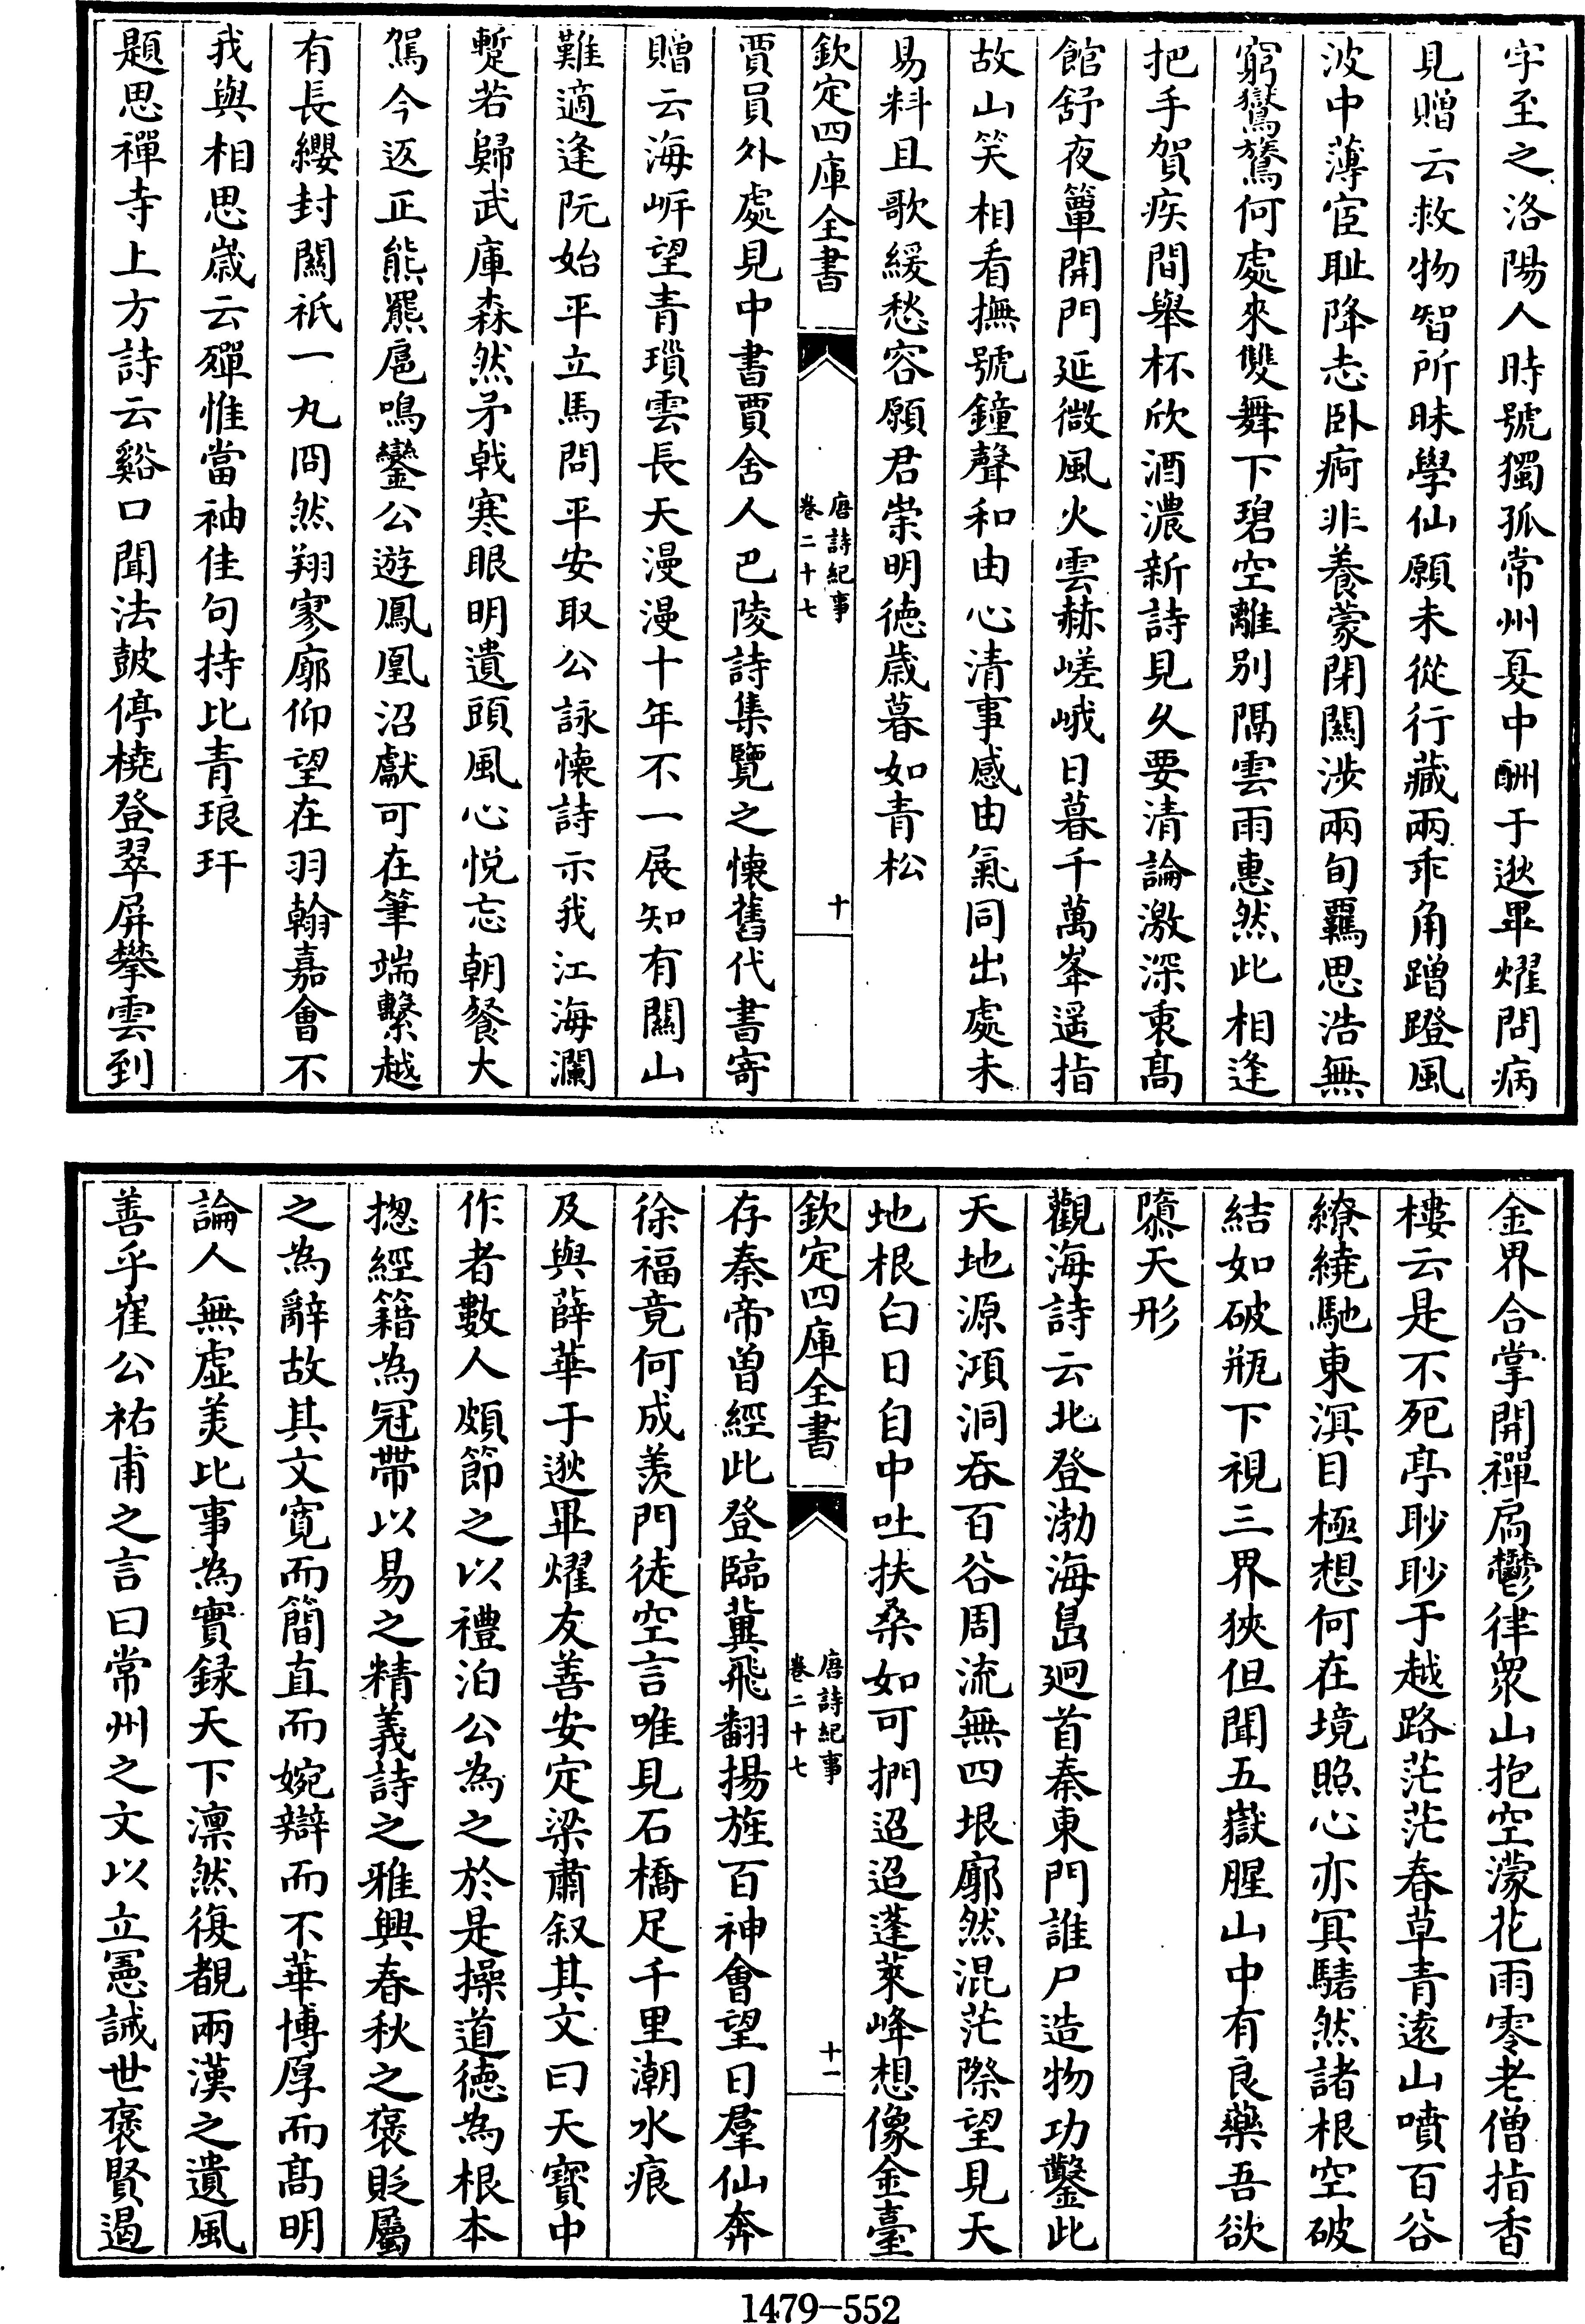 字至之洛陽人時號獨孤常州夏中酬于逖畢燿問病
見贈云救物智所昧學仙願未從行藏兩乖角蹭蹬風
波中薄宦耻降志卧痾非養蒙閉關涉兩旬羈思浩無
窮鸑鷟何處來雙舞下碧空離别隔雲雨惠然此相逢
把手賀疾間舉杯欣酒濃新詩見久要清論激深衷髙
館舒夜簟開門延微風火雲赫嵯峨日暮千萬峯遥指
故山笑相看撫號鐘聲和由心清事感由氣同出處未
易料且歌緩愁容願君崇明德歲暮如青松
欽定四庫全書
唐詩紀事
卷二十七
十
賈員外處見中書賈舍人巴陵詩集覽之懐舊代書寄
贈云海㟁望青瑣雲長天漫漫十年不一展知有闗山
難適逢阮始平立馬問平安取公詠懐詩示我江海瀾
蹔若歸武庫森然矛㦸寒眼明遺頭風心悦忘朝餐大
駕今返正熊羆扈鳴鑾公遊鳳凰沼獻可在筆端繫越
有長纓封闗祇一丸冏然翔寥廓仰望在羽翰嘉會不
我與相思歳云殫惟當袖佳句持比青琅玕
題思禪寺上方詩云谿口聞法鼓停橈登翠屏攀雲到
金界合掌開禪扃鬱律衆山抱空濛花雨零老僧指香
樓云是不死亭眇眇于越路茫茫春草青逺山噴百谷
繚繞馳東溟目極想何在境照心亦冥騞然諸根空破
結如破瓶下視三界狹但聞五嶽腥山中有良藥吾欲
隳天形
觀海詩云北登渤海㠀廻首秦東門誰尸造物功鑿此
天地源澒洞吞百谷周流無四垠廓然混茫際望見天
地根白日自中吐扶桑如可捫迢迢蓬萊峰想像金臺
欽定四庫全書
唐詩紀事
卷二十七
十一
存秦帝曾經此登臨冀飛翻揚旌百神會望日羣仙奔
徐福竟何成羨門徒空言唯見石橋足千里潮水痕
及與薛華于逖畢燿友善安定梁肅叙其文曰天寳中
作者數人頗節之以禮洎公為之於是操道徳為根本
揔經籍為冠帶以易之精義詩之雅興春秋之褒貶屬
之為辭故其文寛而簡直而婉辯而不華博厚而髙明
論人無虛美比事為實録天下凛然復覩兩漢之遺風
善乎崔公祐甫之言曰常州之文以立憲誡世褒賢遏
1479-552